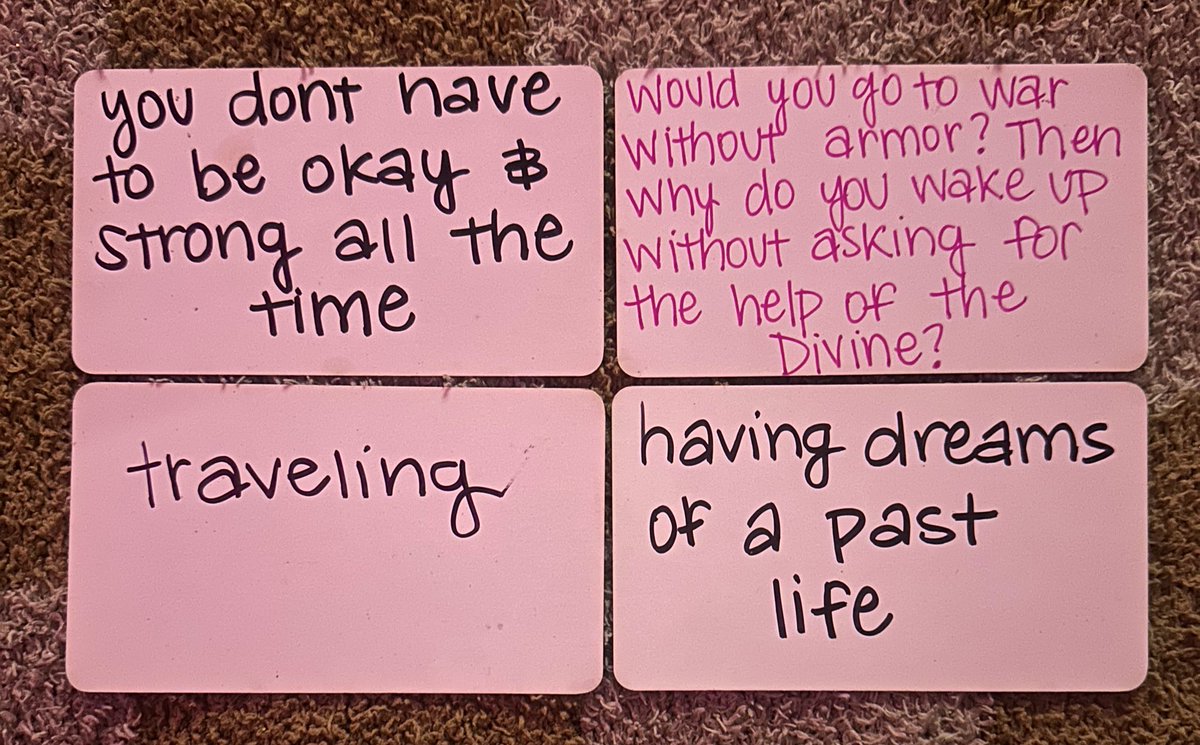 you dont have
to be okay &
strong all the
time
Would you go to war
without armor? Then
why do you wake up
without asking for
the help of the
Divine?
traveling
having dreams
of a past
life